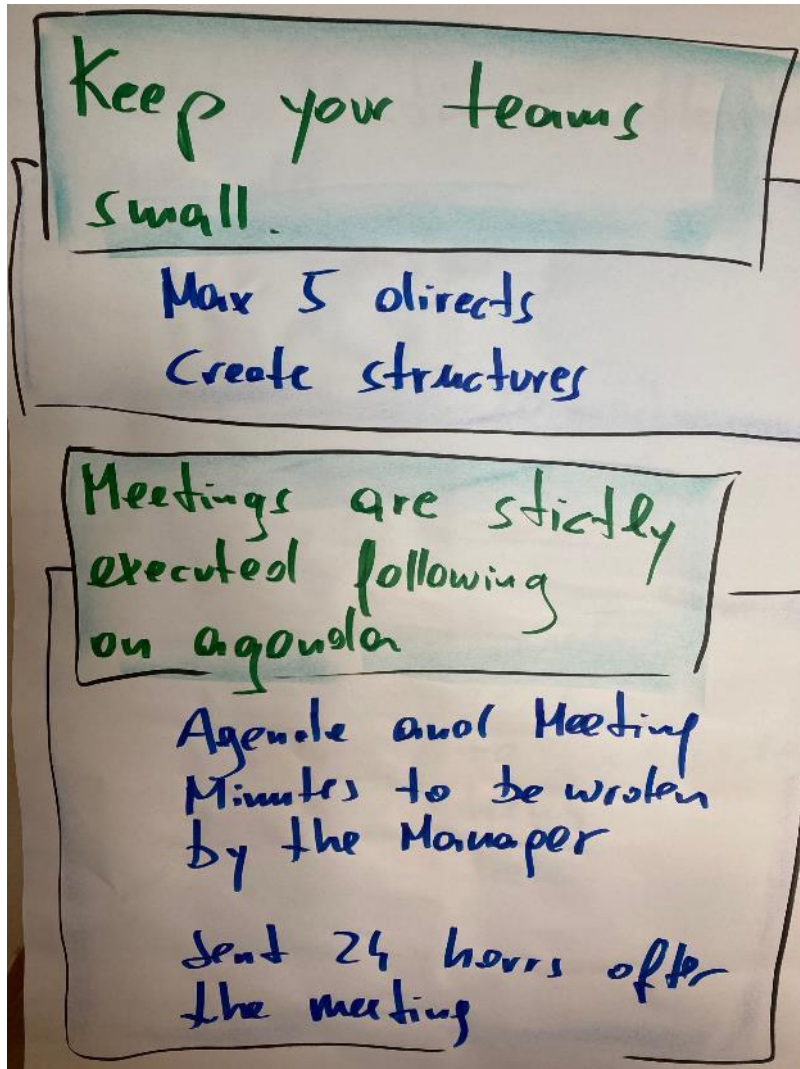 Keep your teams
small.
Max 5 directs
Create structures
Meetings are stictly
executed following
an agenda
Agende and Meeting
Minutes to be wroten
by the Manager
Sent 24 hours after
the meeting